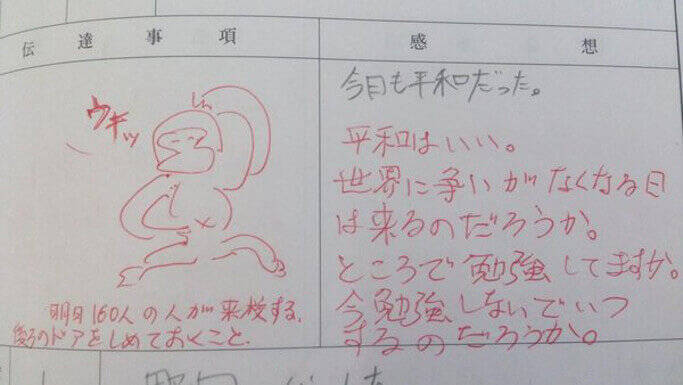 伝達事項
感想
ウキッ
明日160人の人が来校する.
後ろのドアをしめておくこと.
今日も平和だった。
平和はいい。
世界に争いがなくなる日
は来るのだろうか。
ところで勉強してますか。
今勉強しないでいつ
するのだろうか。